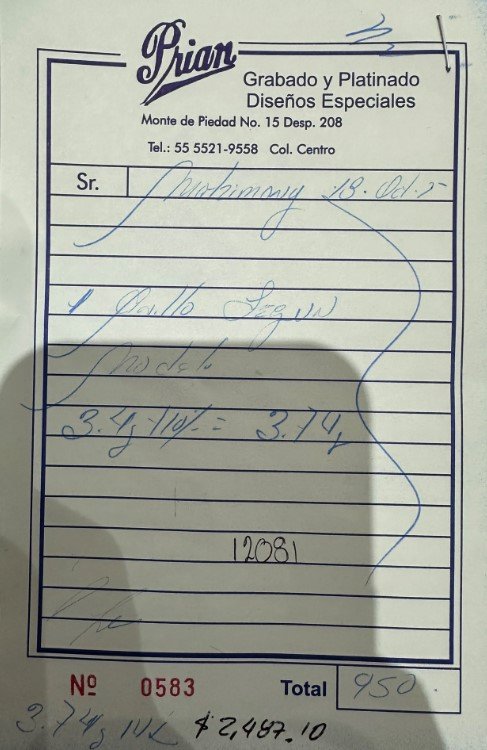 Prian
Grabado y Platinado
Diseños Especiales
Monte de Piedad No. 15 Desp. 208
Tel.: 55 5521-9558 Col. Centro
Sr.
1 Anillo Según
Modelo
3.4g +10% = 3.74g
12081
Nº 0583 Total 950.
3.74g 14k $2,487.10